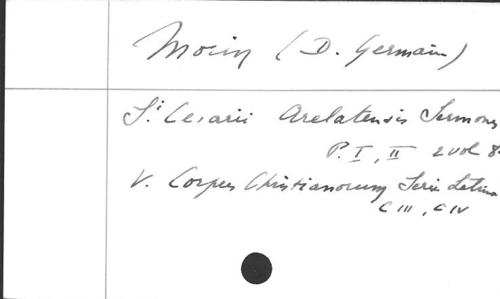 Morin (D. Germain)
S.i Cesarii Arelatensis Sermones
P. I, II 2 vol 8.
V. Corpus Christianorum Serie Latina
C III, C IV